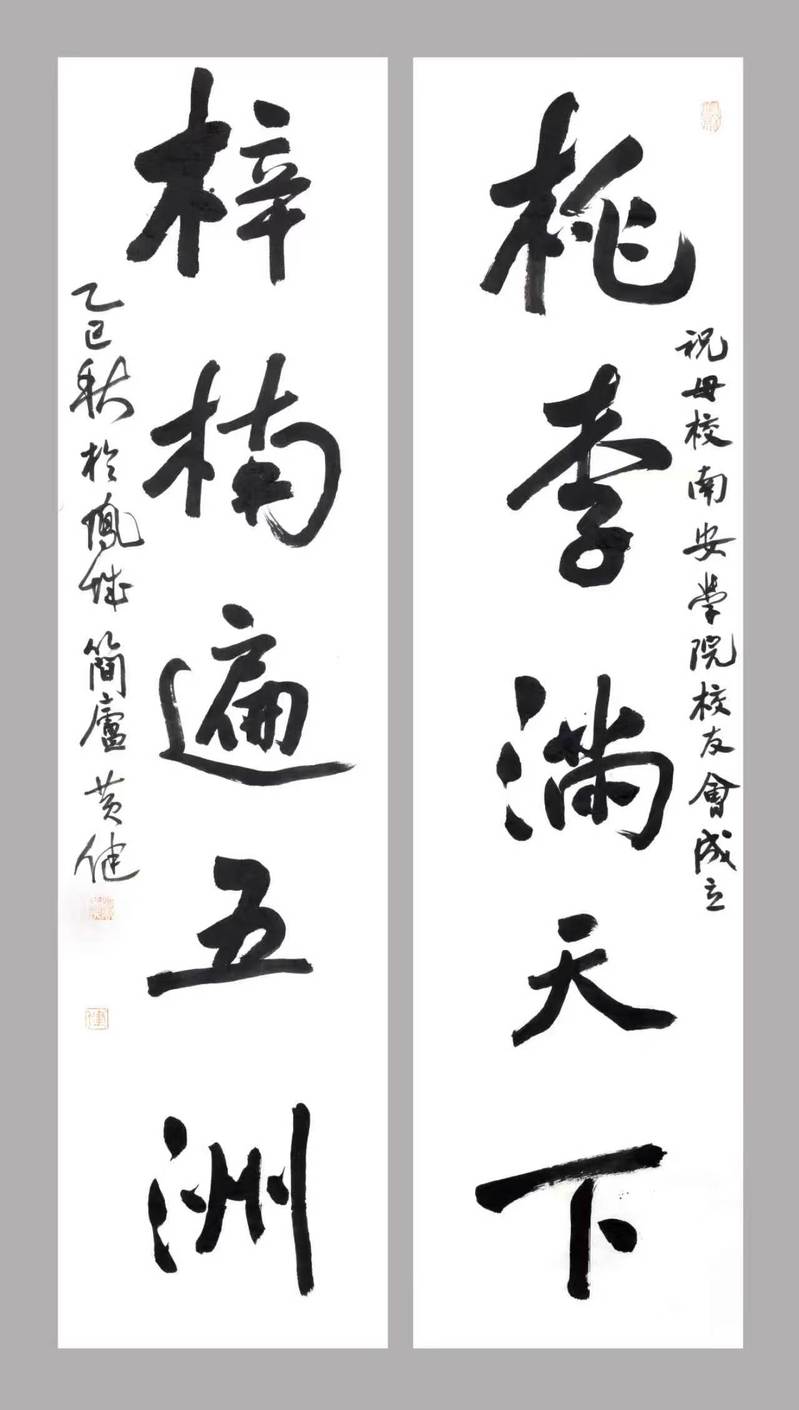 桃李满天下
祝母校南安學院校友會成立
梓楠遍五洲
乙巳秋於鳳城簡廬黄健